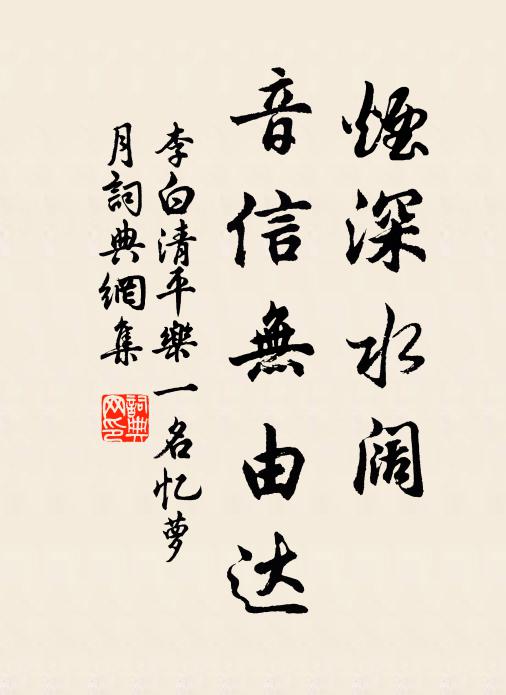 煙深水阔
音信無由达
李白清平樂一名忆萝
月詞典網集
詞典
网印